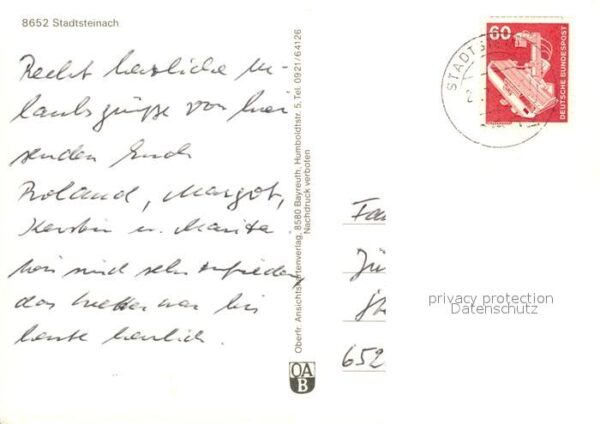 8652 Stadtsteinach
Recht herzliche Ur-
laubsgrüße von hier
senden Euch
Roland, Margot,
Kerstin u. Marita.
Wir sind sehr zufrieden,
das Wetter war bis
heute herrlich.
Oberfr. Ansichtskartenverlag, 8580 Bayreuth, Humboldtstr. 5, Tel. 0921/64126
Nachdruck verboten
OA
B
60
DEUTSCHE BUNDESPOST
STADTS
Fa
Jü
652
privacy protection
Datenschutz